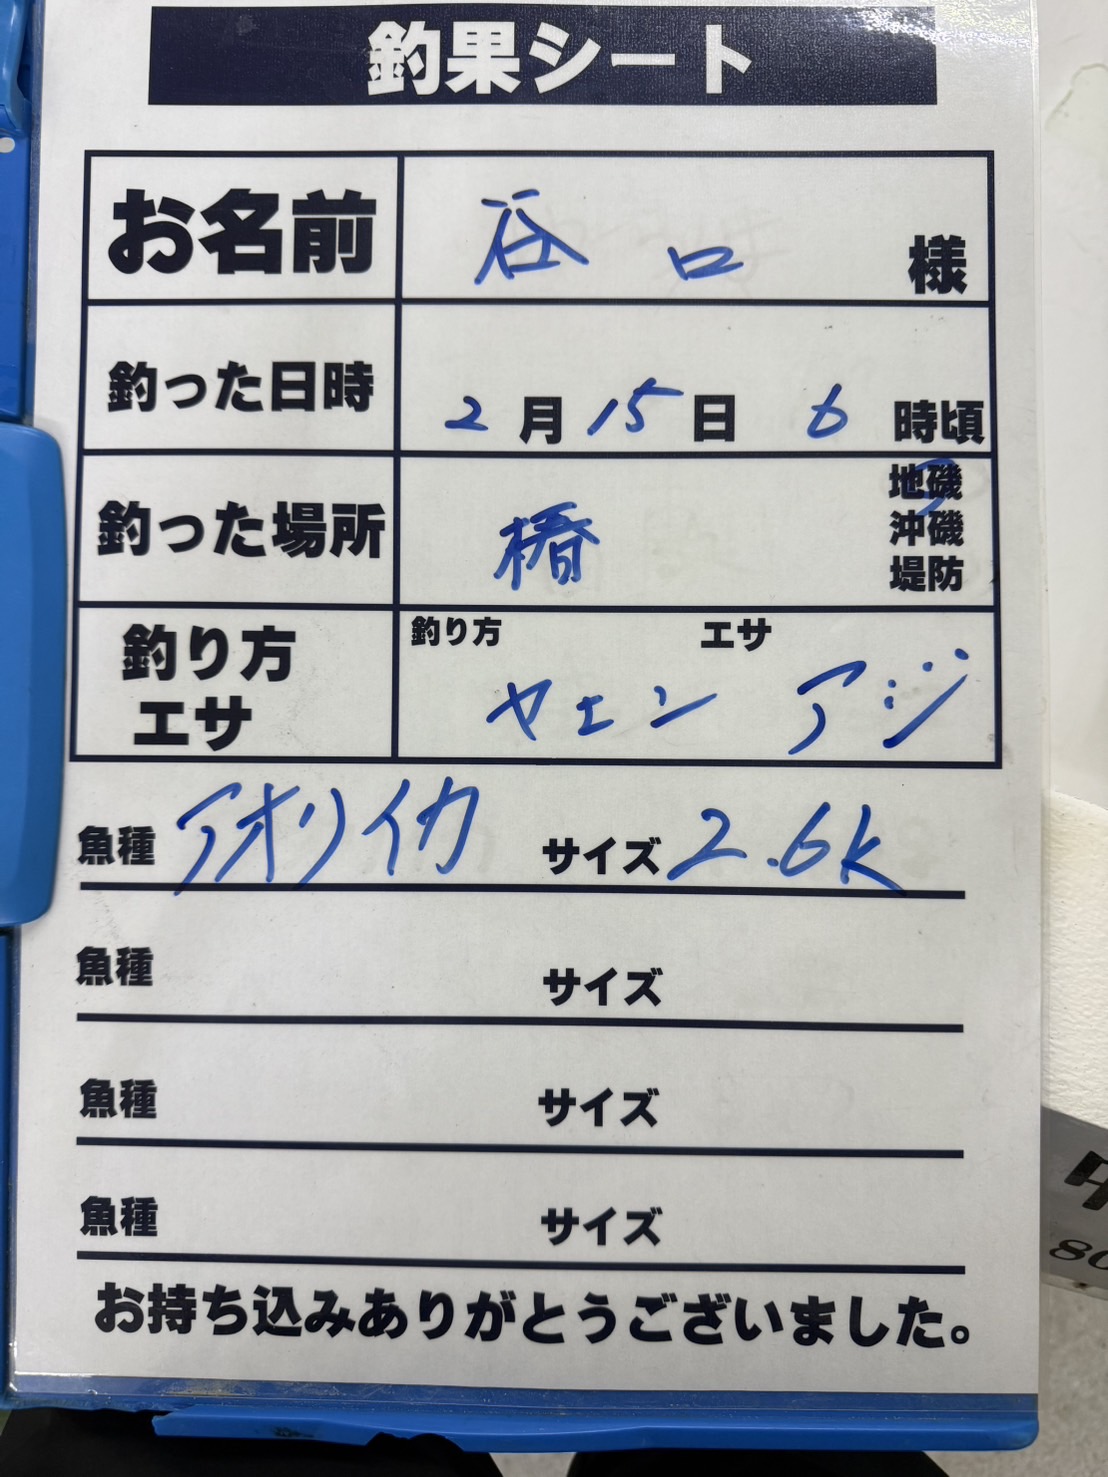 釣果シート
お名前 谷口 様
釣った日時 2月15日 6時頃
釣った場所 椿 地磯 沖磯 堤防
釣り方 エサ
釣り方 ヤエン エサ アジ
魚種 アオリイカ サイズ 2.6k
魚種 サイズ
魚種 サイズ
魚種 サイズ
お持ち込みありがとうございました。
80